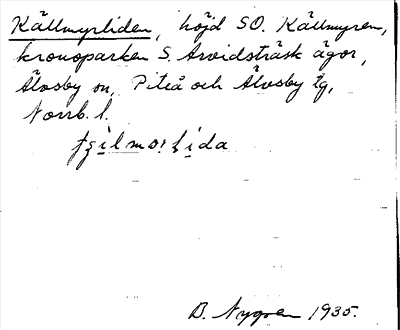 Källmyrliden, höjd SO. Källmyren,
kronoparken S. Arvidsträsk ägor,
Älvsby sn, Piteå och Älvsby tg,
Norrb. l.
B. Nygren 1935.